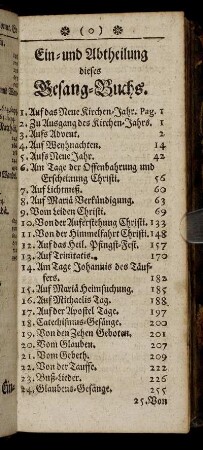 (o)
Ein- und Abtheilung
dieses
Gesang-Buchs.
1. Auf das Neue Kirchen-Jahr. Pag. 1
2. Zu Ausgang des Kirchen-Jahrs. 1
3. Aufs Advent. 2
4. Auf Weyhnachten. 14
5. Aufs Neue Jahr. 42
6. Am Tage der Offenbahrung und
Erscheinung Christi. 56
7. Auf Lichtmeß. 60
8. Auf Mariä Verkündigung. 63
9. Vom Leiden Christi. 69
10. Von der Auferstehung Christi. 133
11. Von der Himmelfahrt Christi. 148
12. Auf das Heil. Pfingst-Fest. 157
13. Auf Trinitatis. 170
14. Am Tage Johannis des Täuf-
fers. 182
15. Auf Mariä Heimsuchung. 185
16. Auf Michaelis Tag. 188
17. Auf der Apostel Tage. 197
18. Catechismus-Gesänge. 200
19. Von den Zehen Geboten. 201
20. Vom Glauben. 207
21. Vom Gebeth. 209
22. Von der Tauffe. 222
23. Buß-Lieder. 226
24. Glaubens-Gesänge. 255
25. Von